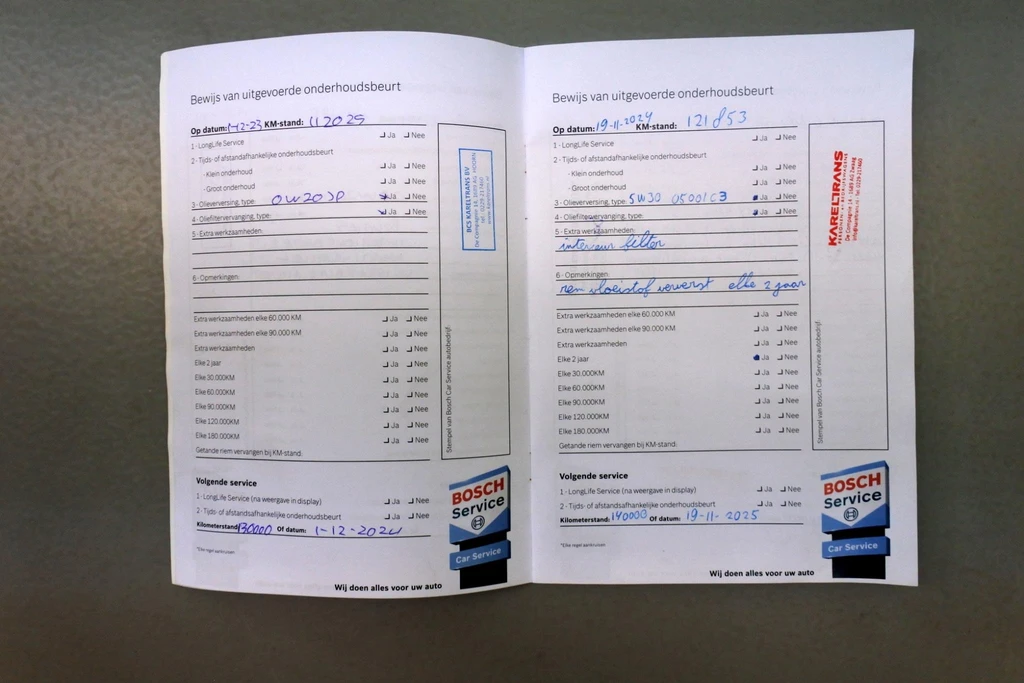 Bewijs van uitgevoerde onderhoudsbeurt
Op datum: 1-12-23 KM-stand: 112025
1 - LongLife Service Ja Nee
2 - Tijds- of afstandafhankelijke onderhoudsbeurt
- Klein onderhoud Ja Nee
- Groot onderhoud Ja Nee
3 - Olieverversing, type: OW20 Ja Nee
4 - Oliefiltervervanging, type: Ja Nee
5 - Extra werkzaamheden:
6 - Opmerkingen:
Extra werkzaamheden elke 60.000 KM Ja Nee
Extra werkzaamheden elke 90.000 KM Ja Nee
Extra werkzaamheden Ja Nee
Elke 2 jaar Ja Nee
Elke 30.000KM Ja Nee
Elke 60.000KM Ja Nee
Elke 90.000KM Ja Nee
Elke 120.000KM Ja Nee
Elke 180.000KM Ja Nee
Getande riem vervangen bij KM-stand:
BCS KARELTRANS BV
De Compagnie 14, HOORN
Stempel van Bosch Car Service autobedrijf:
Volgende service
1 - LongLife Service (na weergave in display) Ja Nee
2 - Tijds- of afstandsafhankelijke onderhoudsbeurt Ja Nee
Kilometerstand: 130000 Of datum: 1-12-2024
*Elke regel aankruisen
BOSCH
Service
Car Service
Wij doen alles voor uw auto
Bewijs van uitgevoerde onderhoudsbeurt
Op datum: 19-11-2024 KM-stand: 121853
1 - LongLife Service Ja Nee
2 - Tijds- of afstandafhankelijke onderhoudsbeurt
- Klein onderhoud Ja Nee
- Groot onderhoud Ja Nee
3 - Olieverversing, type: 5W30 05001C3 Ja Nee
4 - Oliefiltervervanging, type: Ja Nee
5 - Extra werkzaamheden:
interieur filter
6 - Opmerkingen:
rem vloeistof ververst elke 2 jaar
Extra werkzaamheden elke 60.000 KM Ja Nee
Extra werkzaamheden elke 90.000 KM Ja Nee
Extra werkzaamheden Ja Nee
Elke 2 jaar Ja Nee
Elke 30.000KM Ja Nee
Elke 60.000KM Ja Nee
Elke 90.000KM Ja Nee
Elke 120.000KM Ja Nee
Elke 180.000KM Ja Nee
Getande riem vervangen bij KM-stand:
KARELTRANS
De Compagnie 14 - 1689 AG Zwaag
Stempel van Bosch Car Service autobedrijf:
Volgende service
1 - LongLife Service (na weergave in display) Ja Nee
2 - Tijds- of afstandsafhankelijke onderhoudsbeurt Ja Nee
Kilometerstand: 140000 Of datum: 19-11-2025
*Elke regel aankruisen
BOSCH
Service
Car Service
Wij doen alles voor uw auto